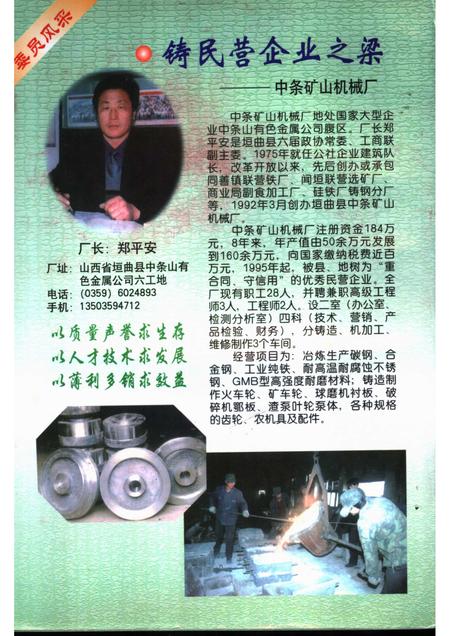 委员风采
铸民营企业之梁
——中条矿山机械厂
中条矿山机械厂地处国家大型企
业中条山有色金属公司腹区。厂长郑
平安是垣曲县六届政协常委、工商联
副主委。1975年就任公社企业建筑队
长，改革开放以来，先后创办或承包
同善镇联营铁厂、闻垣联营选矿厂、
商业局副食加工厂、硅铁厂铸钢分厂
等，1992年3月创办垣曲县中条矿山
机械厂。
中条矿山机械厂注册资金184万
元，8年来，年产值由50余万元发展
到160余万元，向国家缴纳税费近百
万元，1995年起，被县、地树为“重
合同、守信用”的优秀民营企业。全
厂现有职工28人，并聘兼职高级工程
师3人，工程师2人。设二室（办公室、
检测分析室）四科（技术、营销、产
品检验、财务），分铸造、机加工、
维修制作3个车间。
经营项目为：冶炼生产碳钢、合
金钢、工业纯铁、耐高温耐腐蚀不锈
钢、GMB型高强度耐磨材料；铸造制
作火车轮、矿车轮、球磨机衬板、破
碎机鄂板、渣泵叶轮泵体，各种规格
的齿轮、农机具及配件。
厂长：郑平安
厂址：山西省垣曲县中条山有
色金属公司六工地
电话：(0359) 6024893
手机：13503594712
以质量声誉求生存
以人才技术求发展
以薄利多销求效益